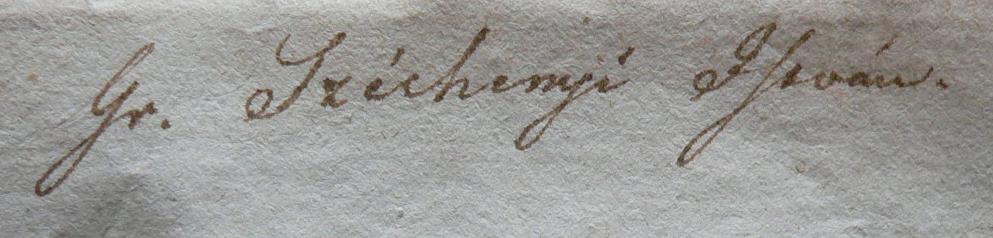 Gr. Széchenyi István.